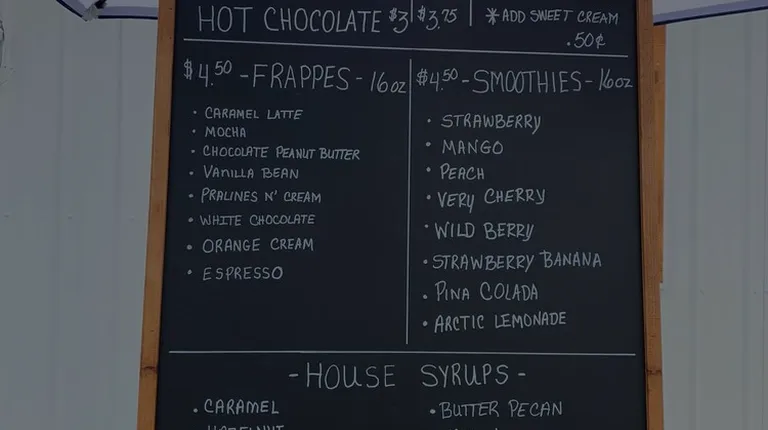 HOT CHOCOLATE $3 | $3.75 | *ADD SWEET CREAM
.50¢
$4.50 - FRAPPES - 16oz
• CARAMEL LATTE
• MOCHA
• CHOCOLATE PEANUT BUTTER
• VANILLA BEAN
• PRALINES N' CREAM
• WHITE CHOCOLATE
• ORANGE CREAM
• ESPRESSO
$4.50 - SMOOTHIES - 16oz
• STRAWBERRY
• MANGO
• PEACH
• VERY CHERRY
• WILD BERRY
• STRAWBERRY BANANA
• PINA COLADA
• ARCTIC LEMONADE
- HOUSE SYRUPS -
• CARAMEL
• BUTTER PECAN